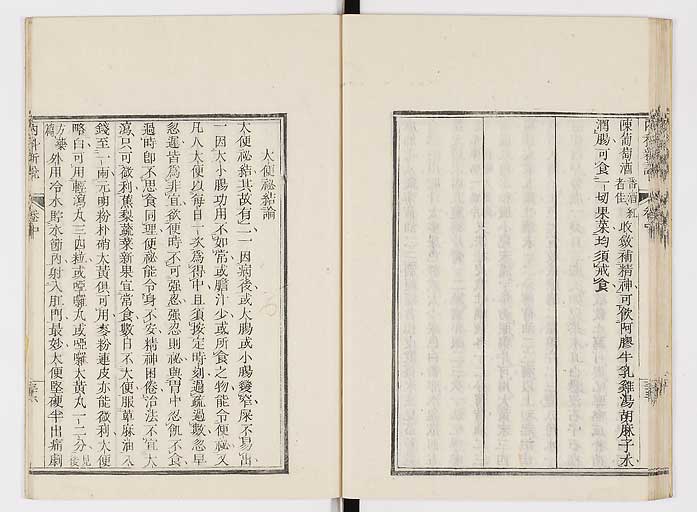 陳葡萄酒香酒紅者佳收斂補精神可飲阿膠牛乳雞湯胡麻子水
潤腸可食一切果菜均須戒食
大便祕結論
大便祕結其故有二一因病後或大腸或小腸變窄屎不易出
一因大小腸功用不如常或膽汁少或所食之物能令便祕又
凡人大便以每日一次為得中且須按定時刻過疏過數忽早
忽遲皆為非宜欲便時不可强忍强忍則祕與胃中忍飢不食
過時卽不思食同理便祕能令身不安精神困倦治法不宜大
瀉只可微利蕉梨蔬菜新果宜常食數日不大便服萆麻油八
錢至一兩元明粉朴硝大黃俱可用麥粉連皮亦能微利大便
略白可用輕瀉丸三四粒或啞囉丸或啞囉大黃丸一二分見後
方藥篇外用冷水貯水節內射入肛門最妙大便堅硬半出痛劇
內科新說
卷中